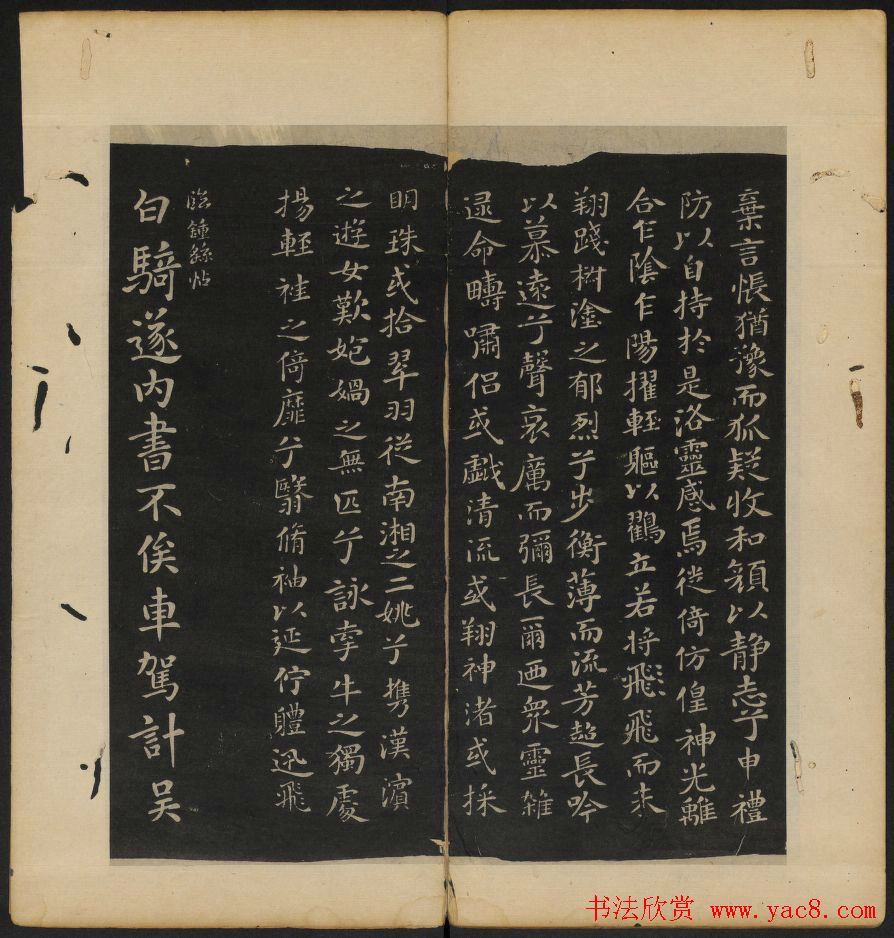 棄言悵猶豫而狐疑收和顏以静志兮申禮
防以自持於是洛靈感焉徙倚仿偟神光離
合乍陰乍陽擢輕軀以鸖立若將飛飛而未
翔踐椒塗之郁烈兮步衡薄而流芳超長吟
以慕遠兮聲哀厲而彌長爾迺眾靈雜
遝命疇嘯侶或戲清流或翔神渚或採
明珠或拾翠羽從南湘之二姚兮攜漢濱
之遊女歎匏媧之無匹兮詠牽牛之獨處
揚輕袿之倚靡兮翳脩袖以延佇體迅飛
臨鍾繇帖
白騎遂內書不俟車駕計吴
书法欣赏 www.yac8.com